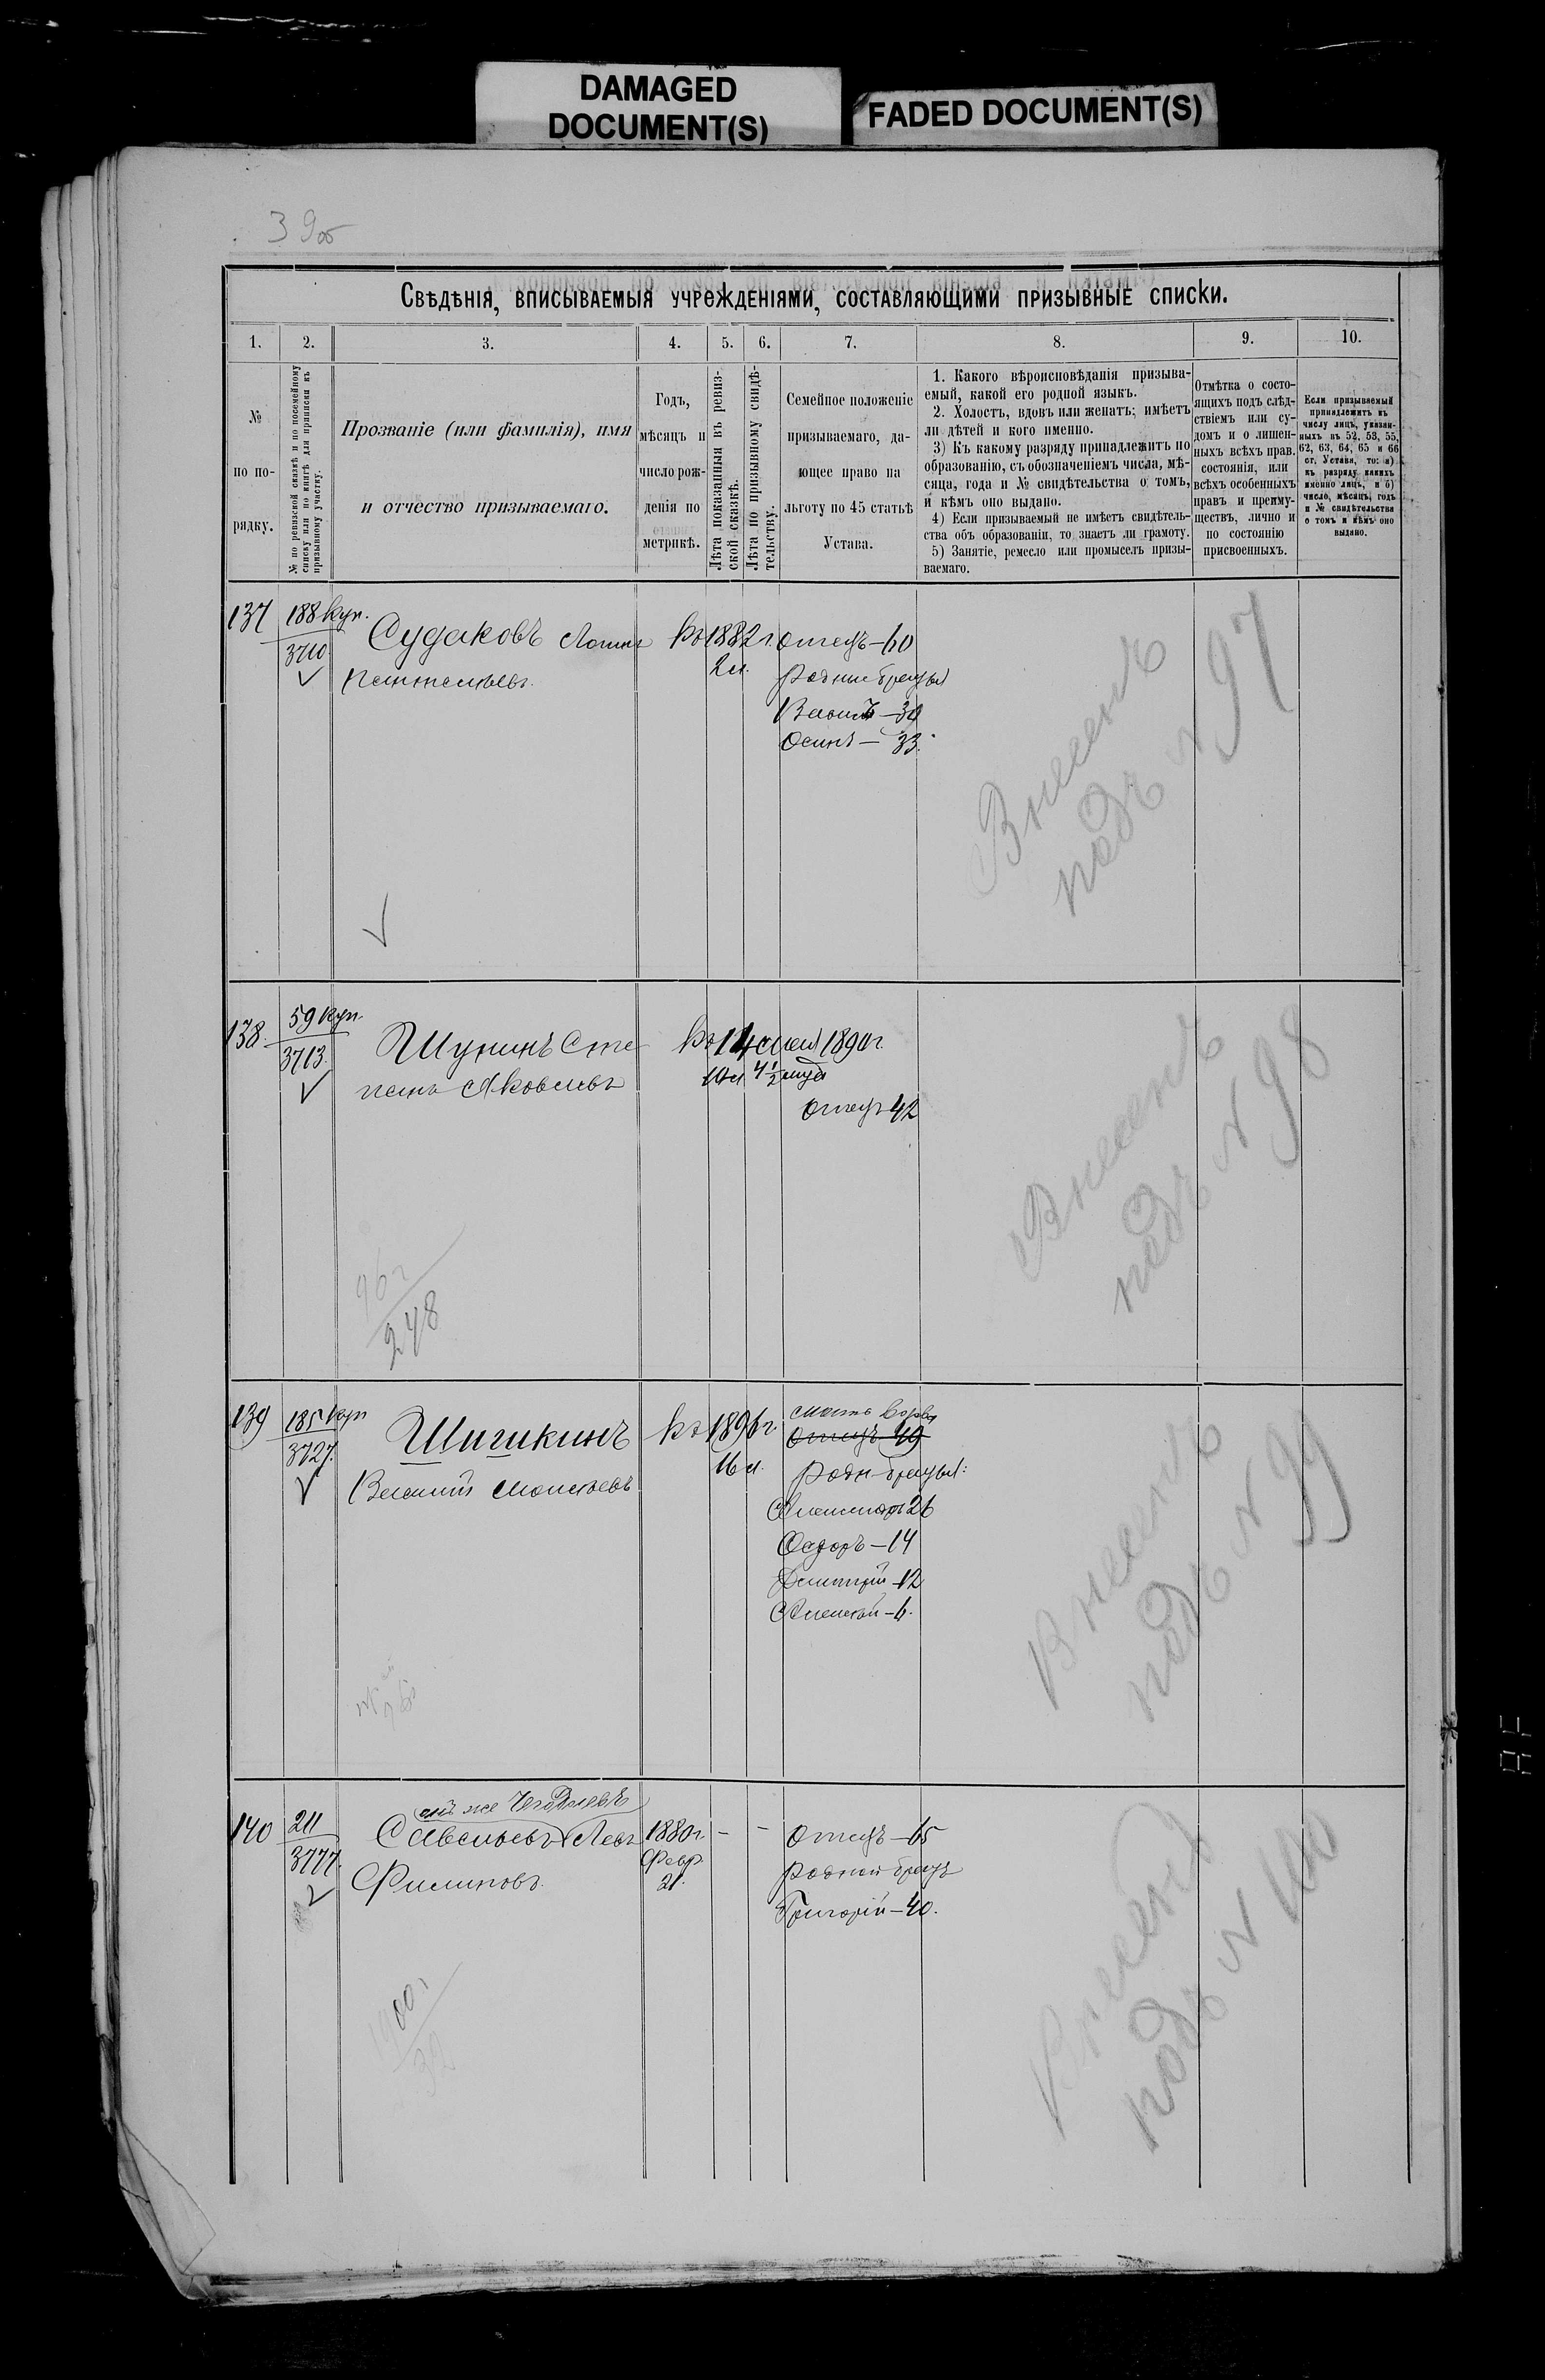 DAMAGED
DOCUMENT(S)
FADED DOCUMENT(S)
39об
Свѣдѣнія, вписываемыя учрежденіями, составляющими призывные списки.
1. 2. 3. 4. 5. 6. 7. 8. 9. 10.
№
по по-
рядку.
№ по ревизской сказкѣ и по посемейному
списку или по книгѣ для приписки къ
призывному участку.
Прозваніе (или фамилія), имя
и отчество призываемаго.
Годъ,
мѣсяцъ и
число рож-
денія по
метрикѣ.
Лѣта показанныя въ ревиз-
ской сказкѣ.
Лѣта по призывному свидѣ-
тельству.
Семейное положеніе
призываемаго, да-
ющее право на
льготу по 45 статьѣ
Устава.
1. Какого вѣроисповѣданія призыва-
емый, какой его родной языкъ.
2. Холостъ, вдовъ или женатъ; имѣетъ
ли дѣтей и кого именно.
3) Къ какому разряду принадлежитъ по
образованію, съ обозначеніемъ числа, мѣ-
сяца, года и № свидѣтельства о томъ,
и кѣмъ оно выдано.
4) Если призываемый не имѣетъ свидѣтель-
ства объ образованіи, то знаетъ ли грамоту.
5) Занятіе, ремесло или промыселъ призы-
ваемаго.
Отмѣтка о состо-
ящихъ подъ слѣд-
ствіемъ или су-
домъ и о лишен-
ныхъ всѣхъ прав.
состоянія, или
всѣхъ особенныхъ
правъ и преиму-
ществъ, лично и
по состоянію
присвоенныхъ.
Если призываемый
принадлежитъ къ
числу лицъ, указан-
ныхъ въ 52, 53, 55,
62, 63, 64, 65 и 66
ст. Устава, то: а)
къ разряду какихъ
именно лицъ, и б)
число, мѣсяцъ, годъ
и № свидѣтельства
о томъ и кѣмъ оно
выдано.
137
188 куп.
3710.
Судаковъ
Къ 1882 г.
2 л.
Отецъ – 60
Родные братья
Василій – 34
Осипъ – 33.
Внесенъ
подъ № 97
138
59 куп.
3713.
Шунинъ Сте-
панъ Яковлевъ
Къ 14 мая 1890 г.
10 л 4½ мца
Отецъ 42
96 г
248
Внесенъ
подъ № 98
139
185 куп
3727.
Шишкинъ
Василій Моисеевъ
Къ 1896 г
16 л.
Мать вдова
Отецъ 49
Родн. братья:
Александръ 26
Федоръ – 14
Дмитрій – 12
Алексѣй – 6.
Внесенъ
подъ № 99
140
211
3777.
онъ же
Савельевъ Левъ
Филиповъ.
1880 г.
Февр.
21.
– –
Отецъ – 65
Родной братъ
Григорій – 40.
1900 г
32
Внесенъ
подъ № 100